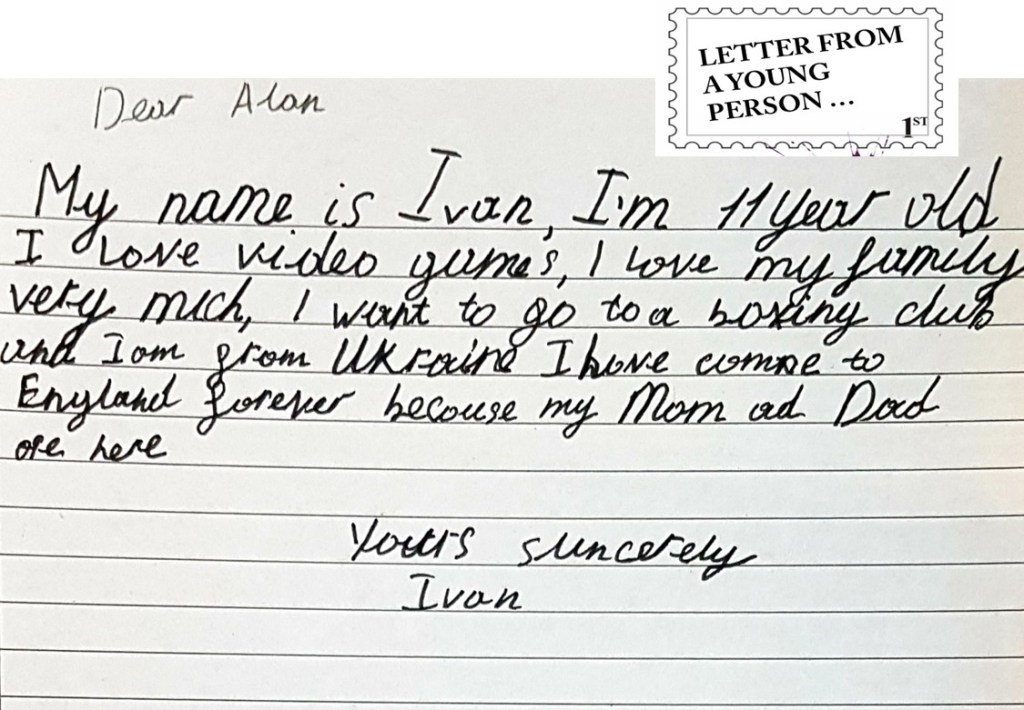 LETTER FROM
A YOUNG
PERSON ...
1ST
Dear Alan
My name is Ivan, I'm 11 year old
I love video games, I love my family
very mich, I want to go to a boxing club
and I am from UKraine I have comne to
England forever becouse my Mom ad Dad
are here
Yours sincerely
Ivan